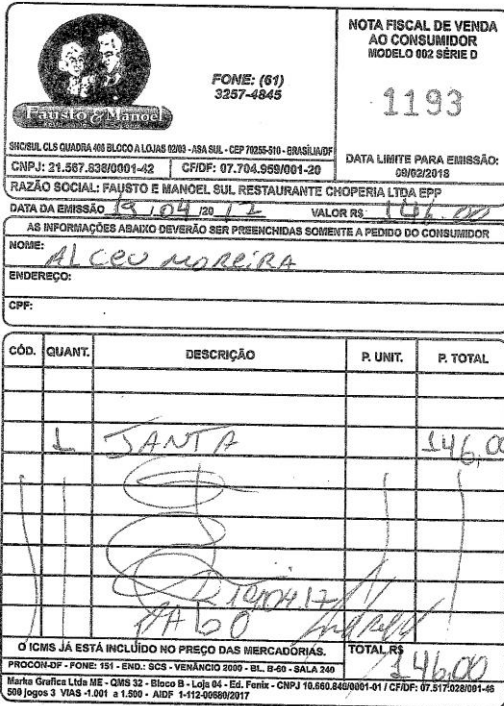 NOTA FISCAL DE VENDA
AO CONSUMIDOR
MODELO 002 SÉRIE D
1193
DATA LIMITE PARA EMISSÃO:
09/02/2018
Fausto & Manoel
FONE: (61)
3257-4845
SHC/SUL CLS QUADRA 408 BLOCO A LOJAS 02/03 - ASA SUL - CEP 70255-510 - BRASÍLIA/DF
CNPJ: 21.567.838/0001-42 CF/DF: 07.704.959/001-20
RAZÃO SOCIAL: FAUSTO E MANOEL SUL RESTAURANTE CHOPERIA LTDA EPP
DATA DA EMISSÃO 19 / 04 /20 17 VALOR R$ 146,00
AS INFORMAÇÕES ABAIXO DEVERÃO SER PREENCHIDAS SOMENTE A PEDIDO DO CONSUMIDOR
NOME: ALCEU MOREIRA
ENDEREÇO:
CPF:
CÓD. QUANT. DESCRIÇÃO P. UNIT. P. TOTAL
1 JANTA 146,00
PAGO
O ICMS JÁ ESTÁ INCLUÍDO NO PREÇO DAS MERCADORIAS. TOTAL R$ 146,00
PROCON-DF - FONE: 151 - END.: SCS - VENÂNCIO 2000 - BL. B-60 - SALA 240
Marka Grafica Ltda ME - QMS 32 - Bloco B - Loja 04 - Ed. Fenix - CNPJ 10.660.849/0001-01 / CF/DF: 07.517.028/001-46
500 jogos 3 VIAS -1.001 a 1.500 - AIDF 1-112-00580/2017